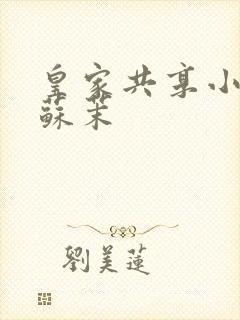 皇家共享小
蘇茉
劉美蓮